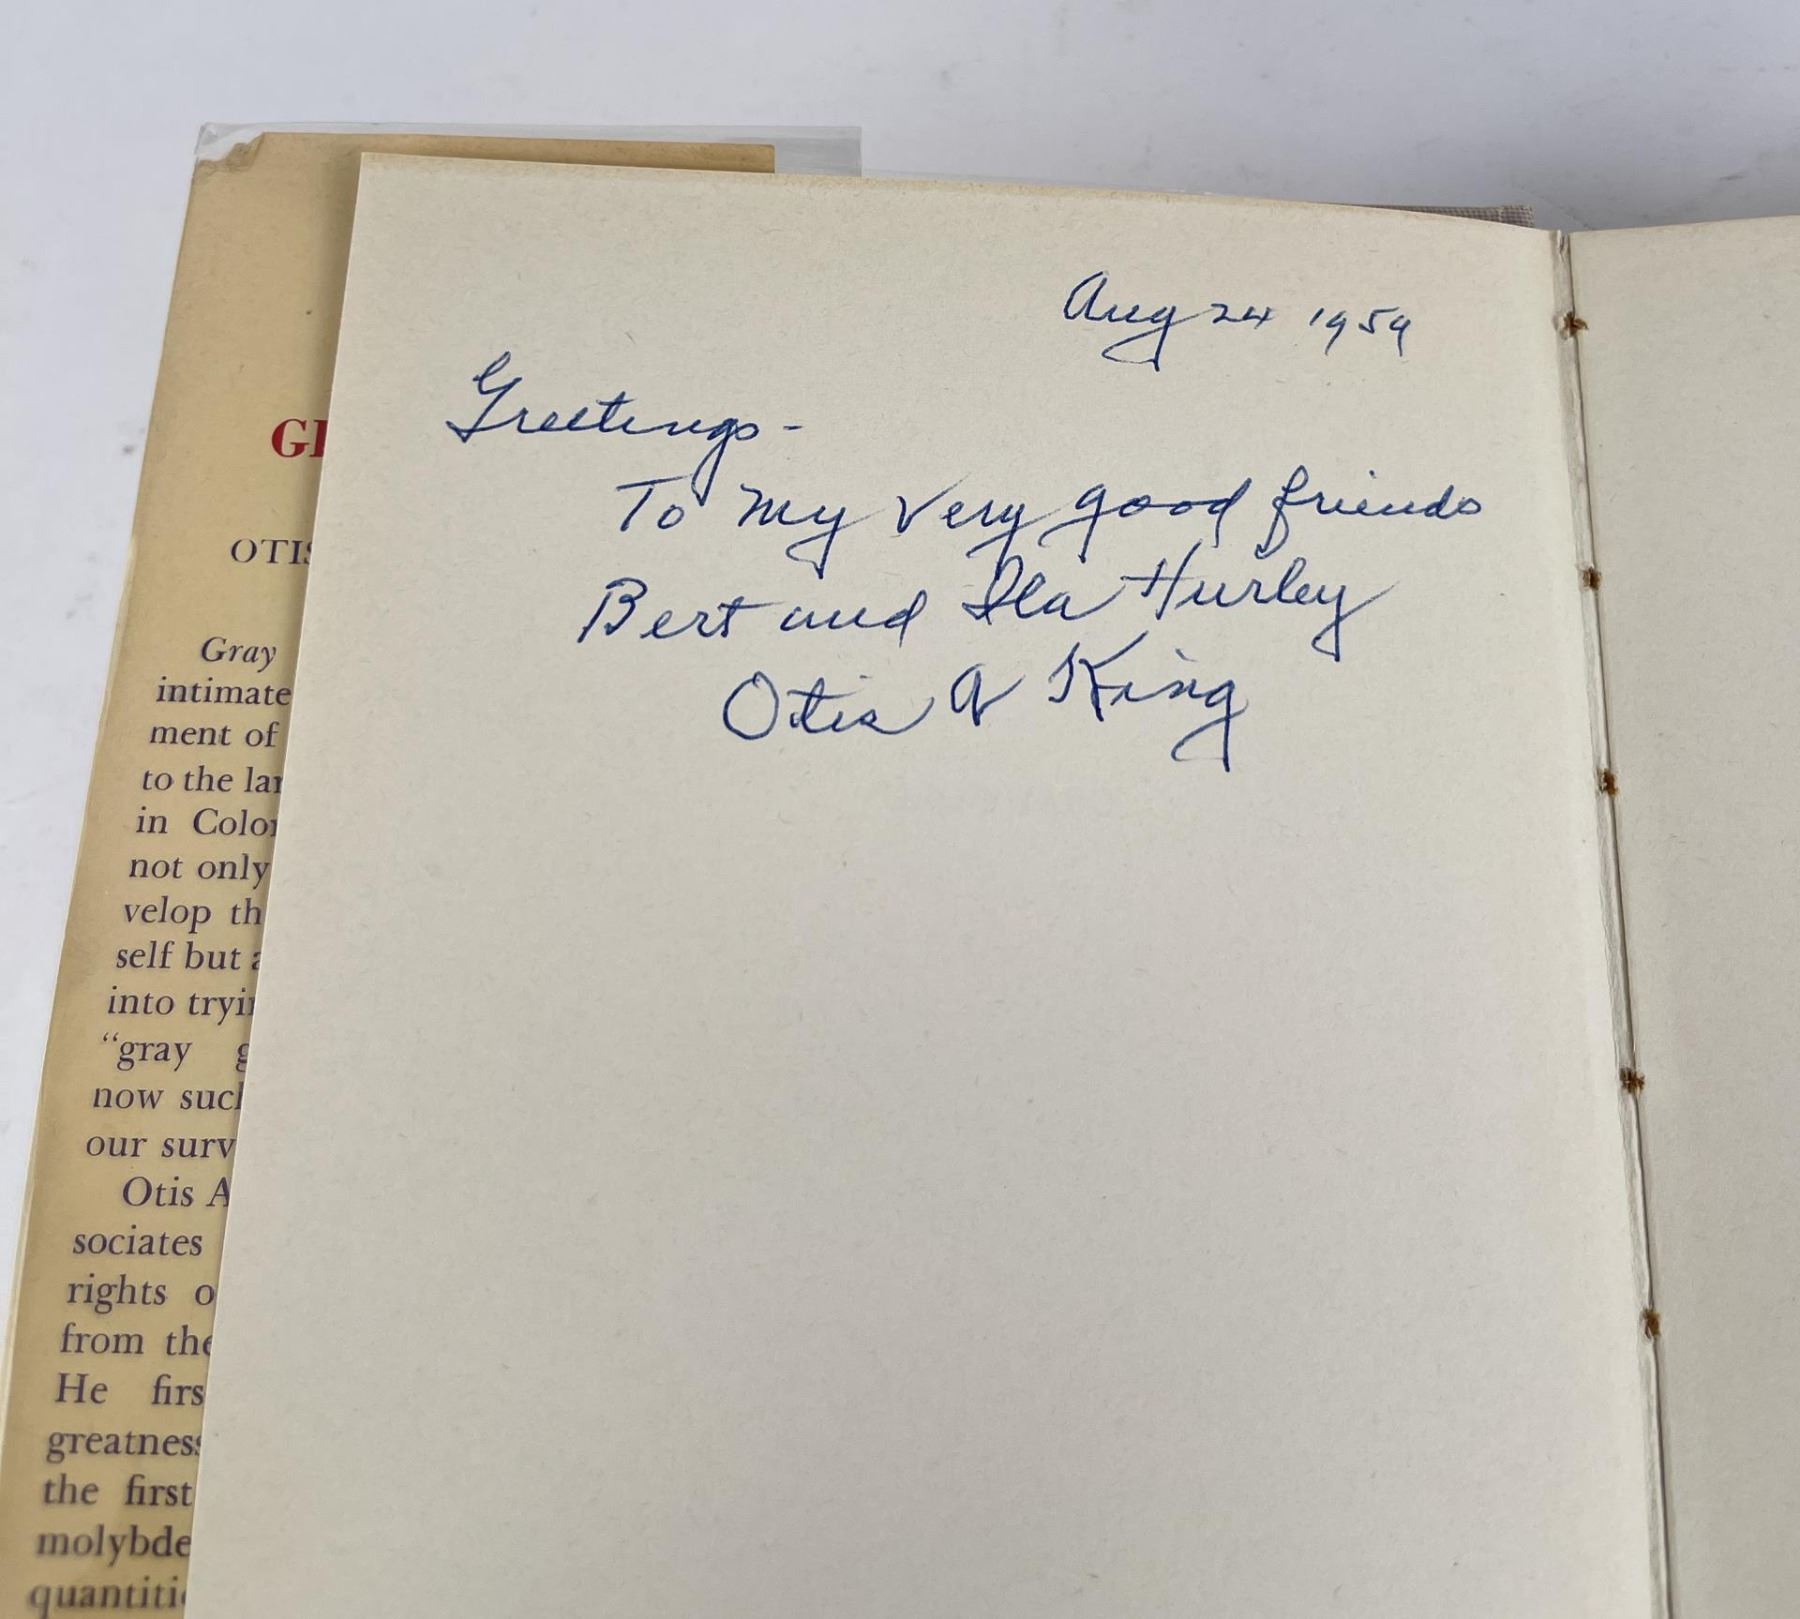 Aug 24 1959
Greetings-
To my very good friends
Bert and Ila Hurley
Otis A King
GR
OTIS
Gray
intimate
ment of
to the lar
in Color
not only
velop th
self but a
into tryin
“gray g
now such
our surv
Otis A
sociates
rights o
from the
He firs
greatness
the first
molybde
quantitie